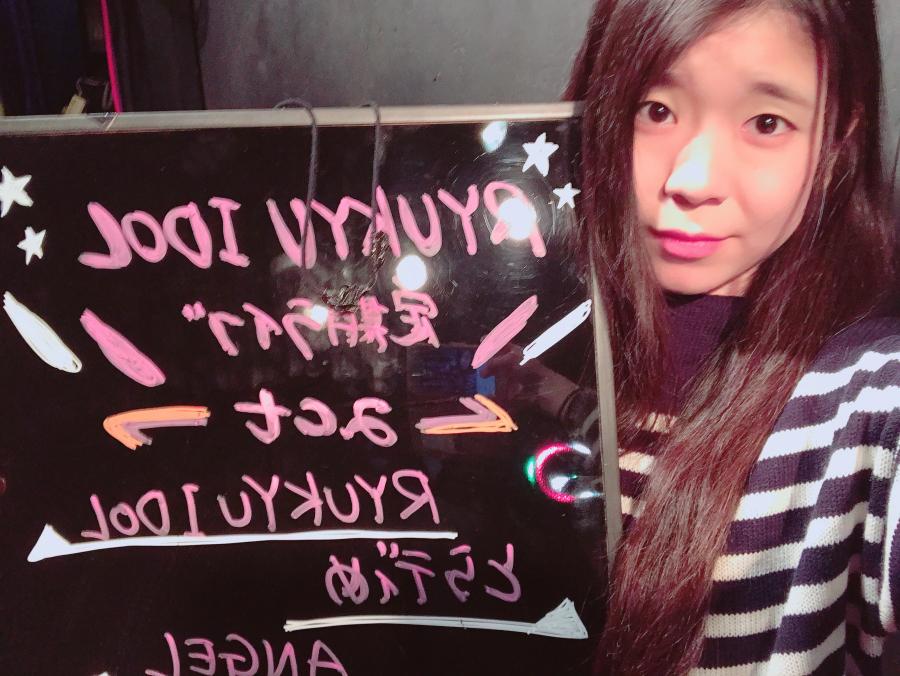 RYUKYU IDOL
定期ライブ
act
RYUKYU IDOL
とらディめ
ANGEL